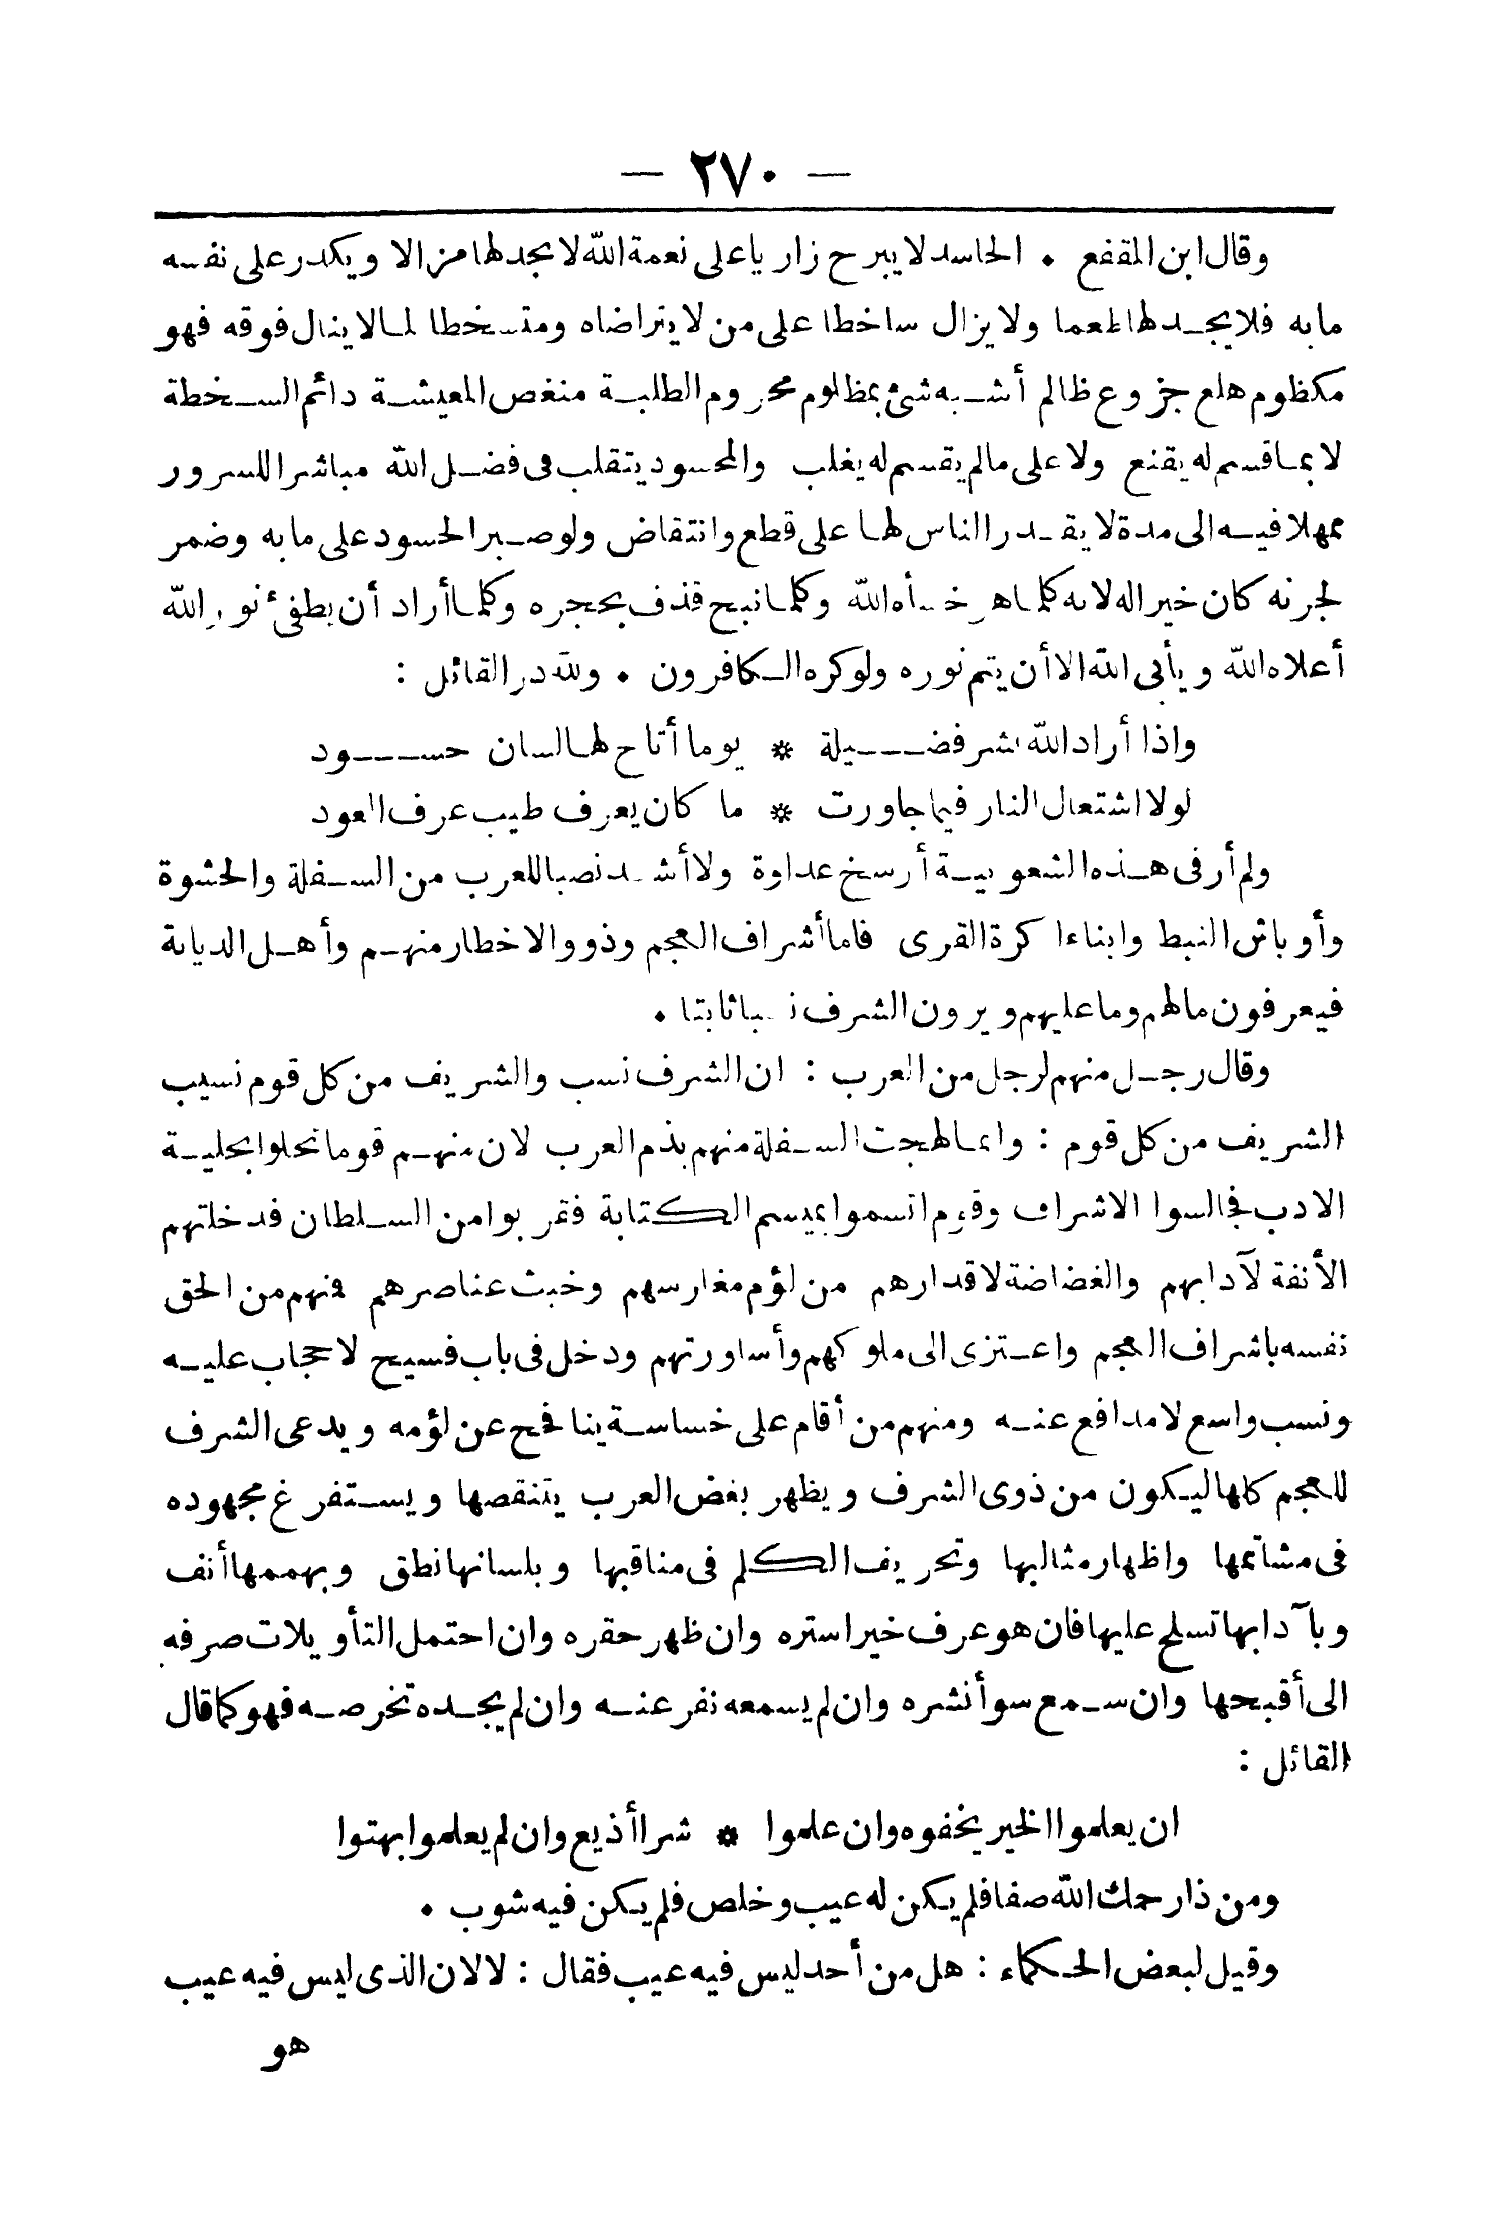 — ٢٧٠ —
وقال ابن المقفع . الحاسد لا يبرح زاريا على نعمة الله لا يجد لها مزالا ويكدر على نفسه
ما به فلا يجد لها طعما ولا يزال ساخطا على من لا يتراضاه ومتسخطا لما لا ينال فوقه فهو
مكظوم هلع جزوع ظالم أشبه شئ بمظلوم محروم الطلبة منغص المعيشة دائم السخطة
لا بما قسم له يقنع ولا على مالم يقسم له يغلب والمحسود يتقلب فى فضل الله مباشرا للسرور
ممهلا فيه الى مدة لا يقدر الناس لها على قطع وانتقاض ولو صبر الحسود على ما به وضمر
لحزنه كان خيرا له لانه كلما هر خسأه الله وكلما نبح قذف بحجره وكلما أراد أن يطفئ نور الله
أعلاه الله ويأبى الله الا أن يتم نوره ولو كره الكافرون . ولله در القائل :
واذا أراد الله نشر فضيلة * يوما أتاح لها لسان حسود
لولا اشتعال النار فيما جاورت * ما كان يعرف طيب عرف العود
ولم أر فى هذه الشعوبية أرسخ عداوة ولا أشد نصبا للعرب من السفلة والحشوة
وأوباش النبط وابناء اكرة القرى فاما أشراف العجم وذوو الاخطار منهم وأهل الديانة
فيعرفون مالهم وما عليهم ويرون الشرف نسبا ثابتا .
وقال رجل منهم لرجل من العرب : ان الشرف نسب والشريف من كل قوم نسيب
الشريف من كل قوم : وانما لهجت السفلة منهم بذم العرب لان منهم قوما تحلوا بحلية
الادب فجالسوا الاشراف وقوم اتسموا بميسم الكتابة فتقربوا من السلطان فدخلتهم
الأنفة لآدابهم والغضاضة لاقدارهم من لؤم مغارسهم وخبث عناصرهم فمنهم من الحق
نفسه باشراف العجم واعتزى الى ملوكهم وأساورتهم ودخل فى باب فسيح لا حجاب عليه
ونسب واسع لا مدافع عنه ومنهم من أقام على خساسة ينافح عن لؤمه ويدعى الشرف
للعجم كلها ليكون من ذوى الشرف ويظهر بغض العرب يتنقصها ويستفرغ مجهوده
فى مشاتمها واظهار مثالبها وتحريف الكلم فى مناقبها وبلسانها نطق وبهممها أنف
وبآدابها تسلح عليها فان هو عرف خيرا ستره وان ظهر حقره وان احتمل التأويلات صرفه
الى أقبحها وان سمع سوأ نشره وان لم يسمعه نفر عنه وان لم يجده تخرصه فهو كما قال
القائل :
ان يعلموا الخير يخفوه وان علموا * شرا أذيع وان لم يعلموا بهتوا
ومن ذا رحمك الله صفا فلم يكن له عيب وخلص فلم يكن فيه شوب .
وقيل لبعض الحكماء : هل من أحد ليس فيه عيب فقال : لا لان الذى ليس فيه عيب
هو